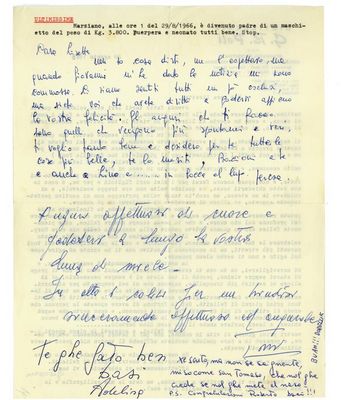 ULTIMISSIME
Marziano, alle ore 1 del 29/8/1966, è divenuto padre di un maschi-
etto del peso di Kg. 3.800. Puerpera e neonato tutti bene. Stop.
Cara
non so cosa dirti, me l'aspettavo, ma
quando Giovanni mi ha dato la notizia mi sono
commossa. Ci siamo sentiti tutti un po' esclusi,
ma siete voi che avete diritto a godervi
la vostra felicità. Gli auguri che ti faccio
sono quelli che vengono più spontanei e veri,
ti voglio tanto bene e desidero per te tutte le
cose più belle, te lo meriti, Bacioni a te
e anche a Lino e ...... in bocca al lupo
Auguri affettuosi di cuore e
godetevi a lungo la vostra
luna di miele.
In alto i calici per un brindisi
sinceramente affettuoso ed
Te ghe fato ben
basi
xe santo, ma non se se pente,
mi so come san Tomaso, che nol ghe
crede se nol ghe mete el naso!
P.S. Congratulazioni Roberto baci!!!